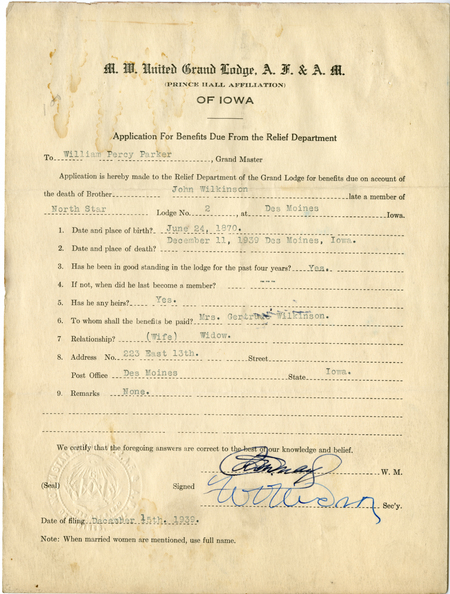 M. W. United Grand Lodge, A. F. & A. M.
(PRINCE HALL AFFILIATION)
OF IOWA
Application For Benefits Due From the Relief Department
To William Percy Parker, Grand Master
Application is hereby made to the Relief Department of the Grand Lodge for benefits due on account of
the death of Brother John Wilkinson late a member of
North Star Lodge No. 2, at Des Moines Iowa.
1. Date and place of birth? June 24, 1870.
2. Date and place of death? December 11, 1939 Des Moines, Iowa.
3. Has he been in good standing in the lodge for the past four years? Yes.
4. If not, when did he last become a member? ---
5. Has he any heirs? Yes.
6. To whom shall the benefits be paid? Mrs. Gertrude Wilkinson.
7 Relationship? (Wife) Widow.
8 Address No. 223 East 13th. Street
Post Office Des Moines State Iowa.
9. Remarks None.
We certify that the foregoing answers are correct to the best of our knowledge and belief.
W. M.
(Seal) Signed
Sec'y.
Date of filing December 15th. 1939.
Note: When married women are mentioned, use full name.